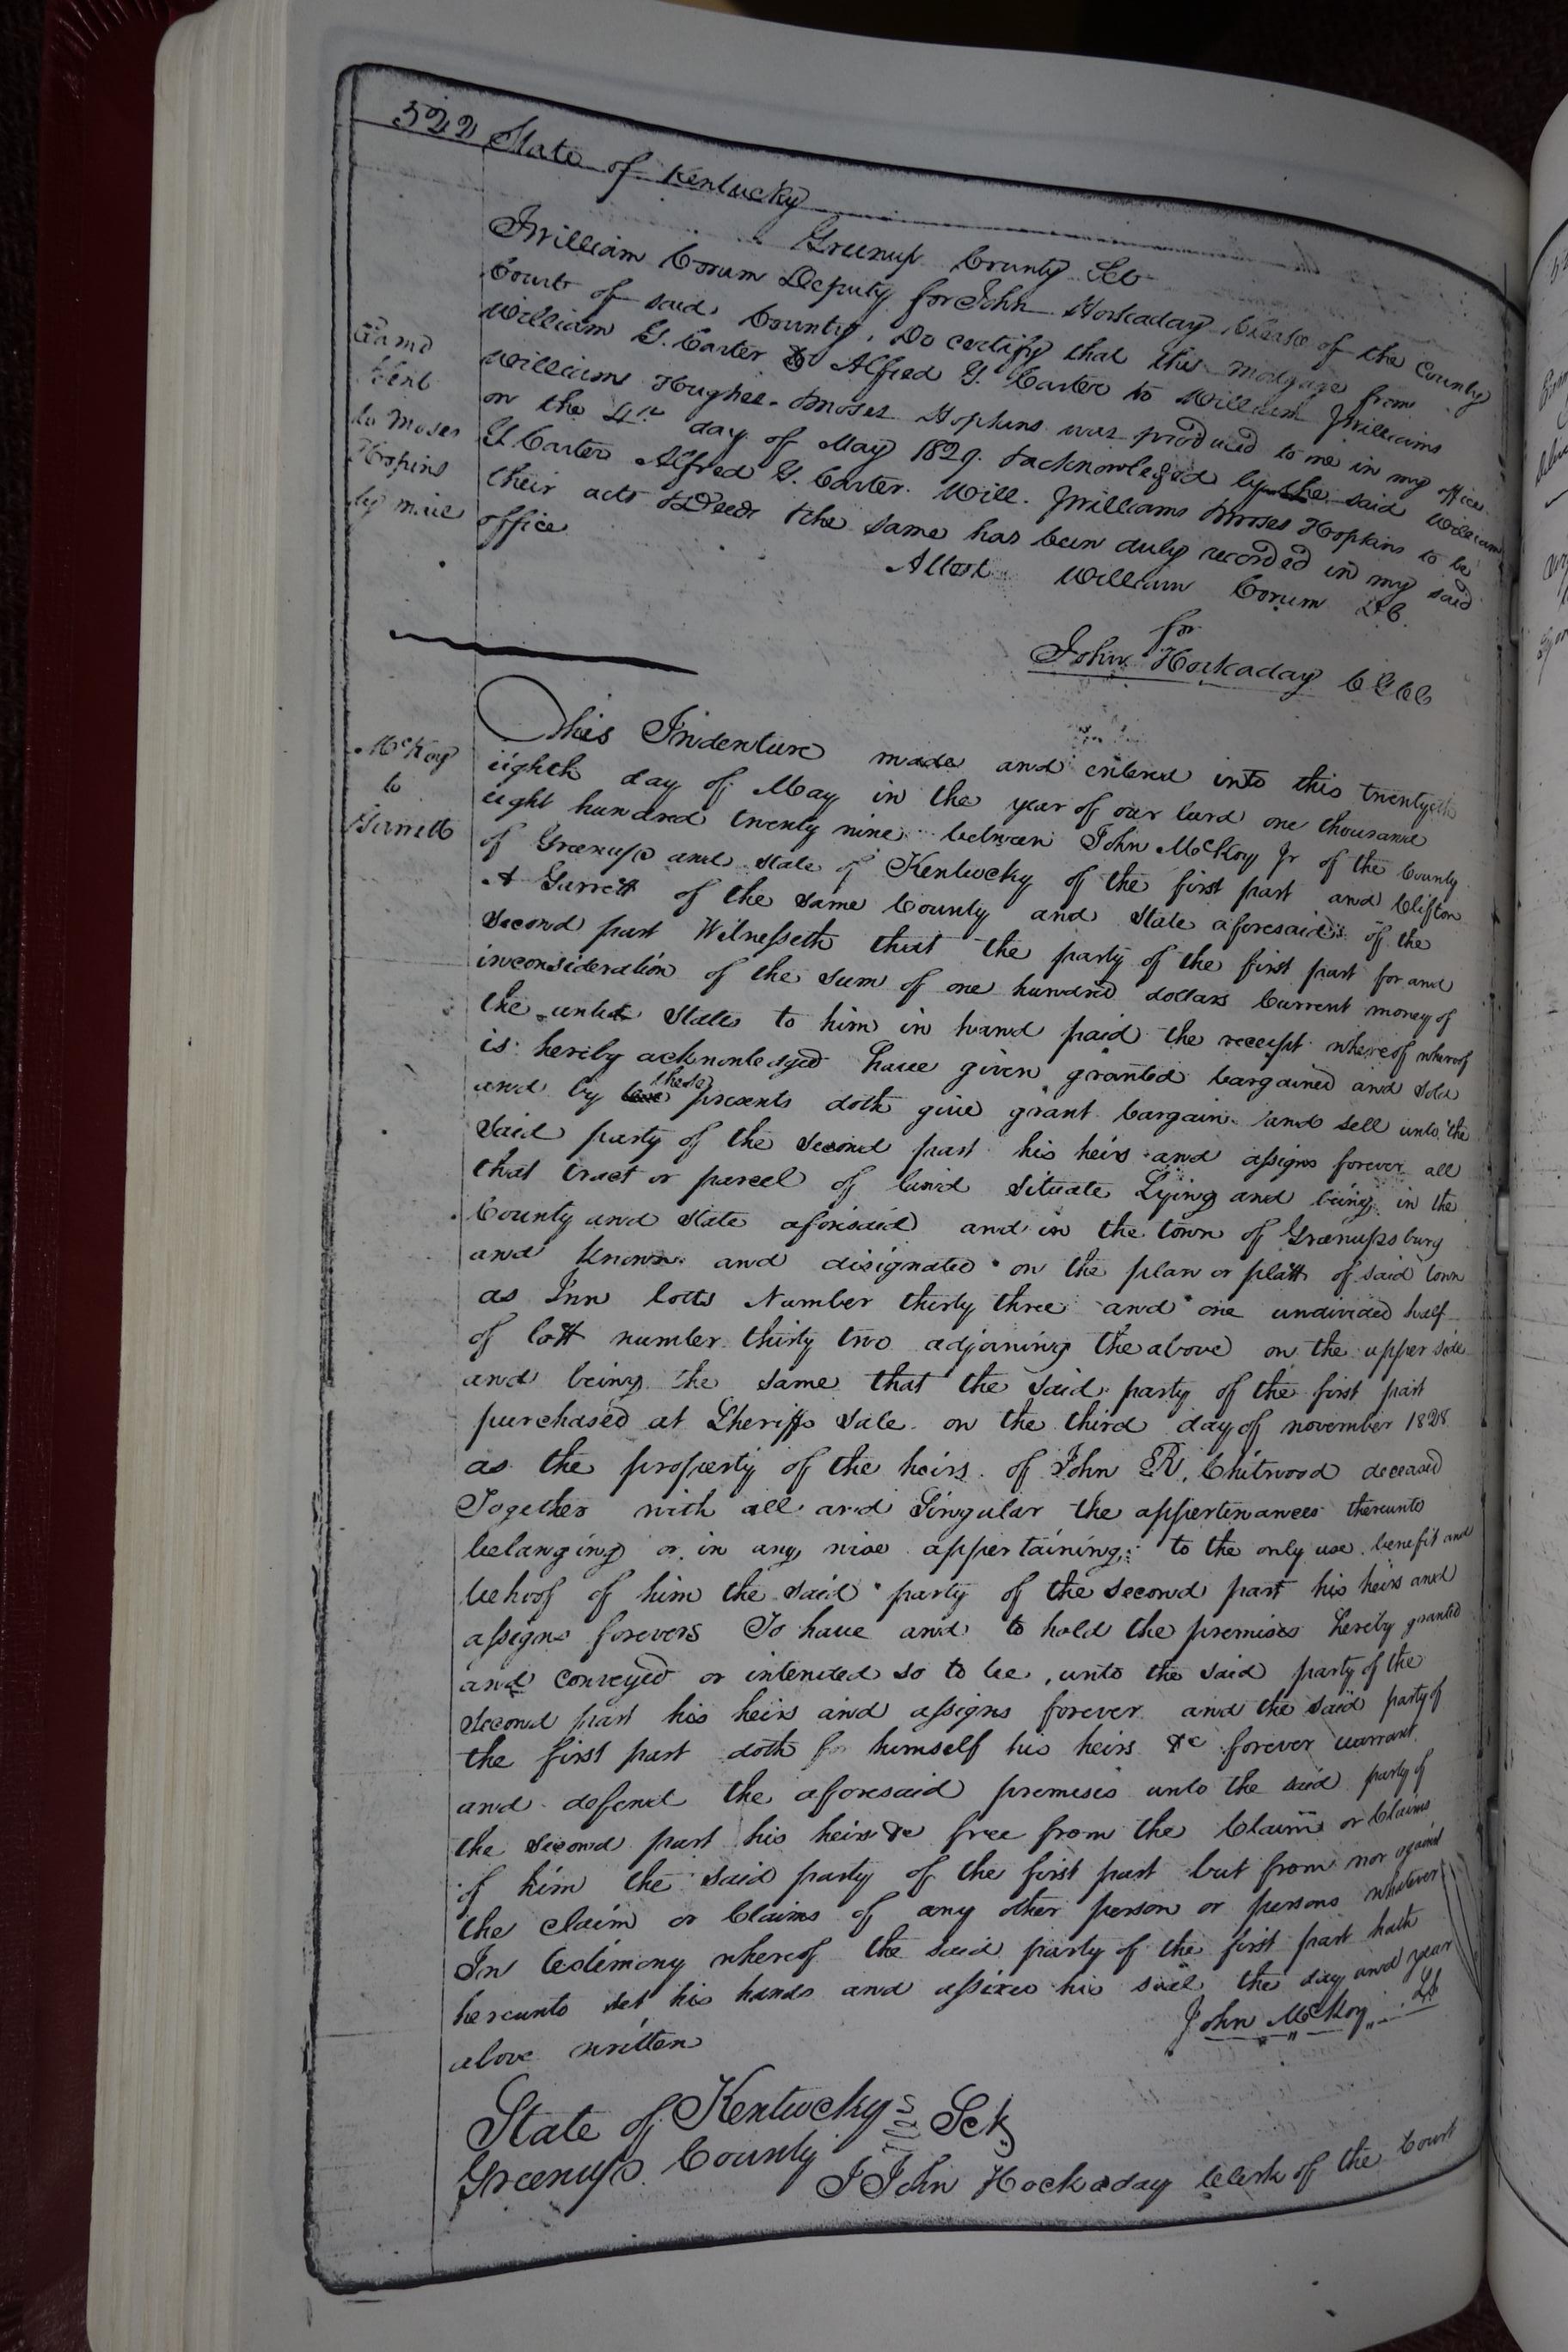 522 State of Kentucky
Greenup County Sct
I William Corum Deputy for John Hockaday Clerk of the County
Court of said County, Do certify that this mortgage from
William G. Carter & Alfred G. Carter to William Williams
Williams Hughes & Moses Hopkins was produced to me in my office
on the 4th day of May 1829. & acknowleged by the said William
G Carter Alfred G. Carter. Will. Williams & Moses Hopkins to be
their acts & Deeds & the same has been duly recorded in my said
office
Attest William Corum D.C.
for
John Hockaday C G C C
Exam'd
& sent
to Moses
Hopins
by mail
McKoy
to
Garrett
This Indenture made and entered into this twentyeth
eighth day of May in the year of our lord one thousand
eight hundred twenty nine between John McKoy Jr of the County
of Greenup and state of Kentucky of the first part and Clifton
A Garrett of the same County and State aforesaid of the
second part Witnesseth that the party of the first part for and
inconsideration of the sum of one hundred dollars Current money of
the united States to him in hand paid the receipt whereof whereof
is hereby acknowledged have given granted bargained and sold
and by these presents doth give grant bargain and sell unto the
Said party of the second part his heirs and assigns forever all
that tract or parcel of land situate Lying and being in the
County and State aforesaid and in the town of Greenupsburg
and known and disignated on the plan or platt of said town
as Inn lotts Number thirty three and one undivided half
of lott number thirty two adjoining the above on the upper side
and being the same that the said party of the first part
purchased at Sheriffs Sale on the third day of november 1828
as the property of the heirs of John R. Chitwood deceased
Together with all and Singular the appertinances thereunto
belanging or in any wise appertaining: to the only use benefit and
behoof of him the said party of the second part his heirs and
assigns forevers To have and to hold the premises hereby granted
and conveyed or intended so to be, unto the said party of the
second part his heirs and assigns forever and the said party of
the first part doth for himself his heirs &c forever warrant
and defend the aforesaid premises unto the said party of
the second part his heirs &c free from the Claim or Claims
of him the said party of the first part but from nor against
the claim or Claims of any other person or persons whatever
In testimony whereof the said party of the first part hath
hereunto set his hands and affixed his seal the day and year
above written
John McKoy LS
State of Kentucky
Greenup County Sct
I John Hockaday Clerk of the Court